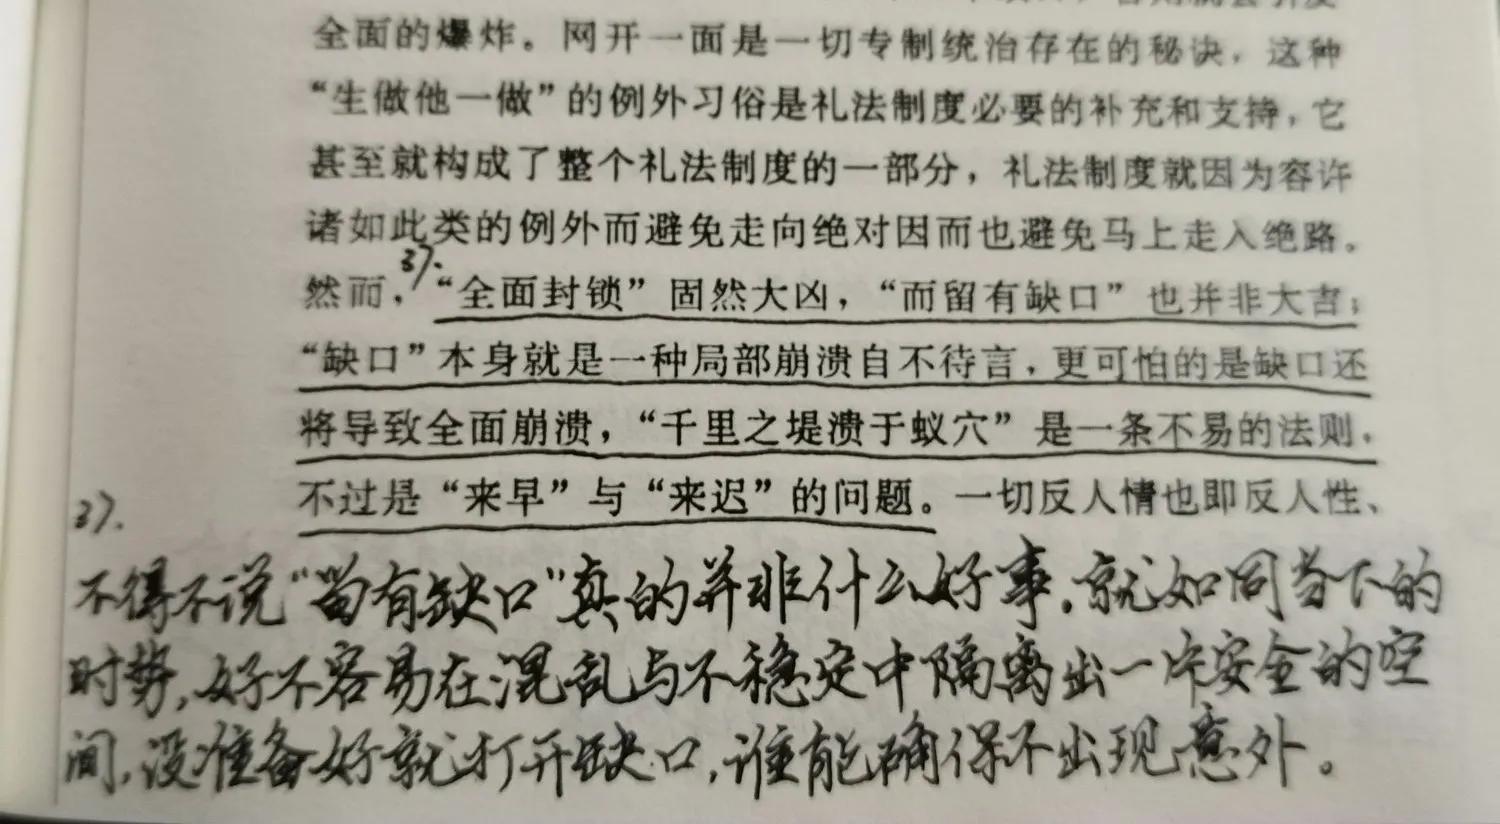 全面的爆炸。网开一面是一切专制统治存在的秘诀，这种
“生做他一做”的例外习俗是礼法制度必要的补充和支持，它
甚至就构成了整个礼法制度的一部分，礼法制度就因为容许
诸如此类的例外而避免走向绝对因而也避免马上走入绝路。
37.
然而，“全面封锁”固然大凶，“而留有缺口”也并非大吉；
“缺口”本身就是一种局部崩溃自不待言，更可怕的是缺口还
将导致全面崩溃，“千里之堤溃于蚁穴”是一条不易的法则，
不过是“来早”与“来迟”的问题。一切反人情也即反人性、
37.
不得不说“留有缺口”真的并非什么好事。就如同当下的
时势，好不容易在混乱与不稳定中隔离出一片安全的空
间，没准备好就打开缺口，谁能确保不出现意外。